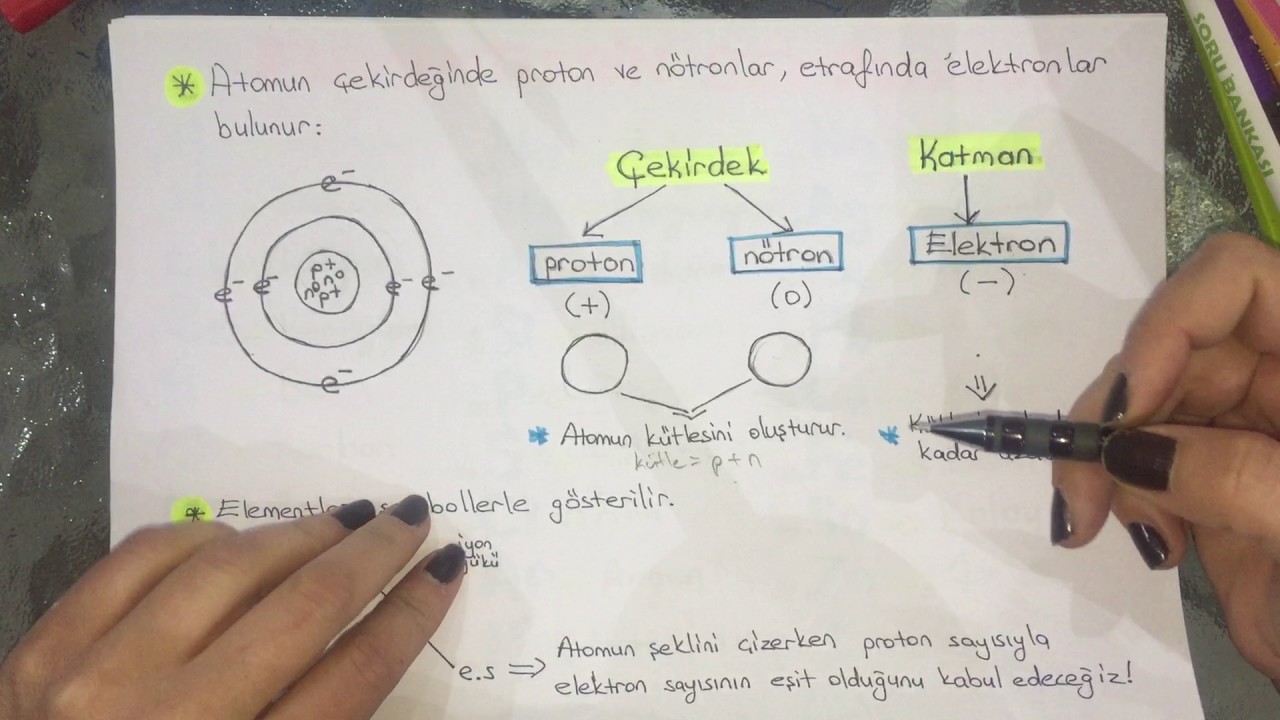 * Atomun çekirdeğinde proton ve nötronlar, etrafında elektronlar
bulunur:
e⁻
e⁻ e⁻ e⁻ e⁻
e⁻
Çekirdek
proton
(+)
nötron
(0)
* Atomun kütlesini oluşturur.
kütle = p + n
Katman
Elektron
(-)
*
kadar
* bollerle gösterilir.
iyon
e.s ⇒ Atomun şeklini çizerken proton sayısıyla
elektron sayısının eşit olduğunu kabul edeceğiz!
SORU BANKASI